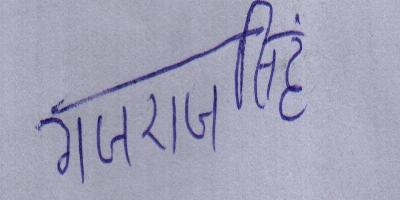 गजराज सिहं